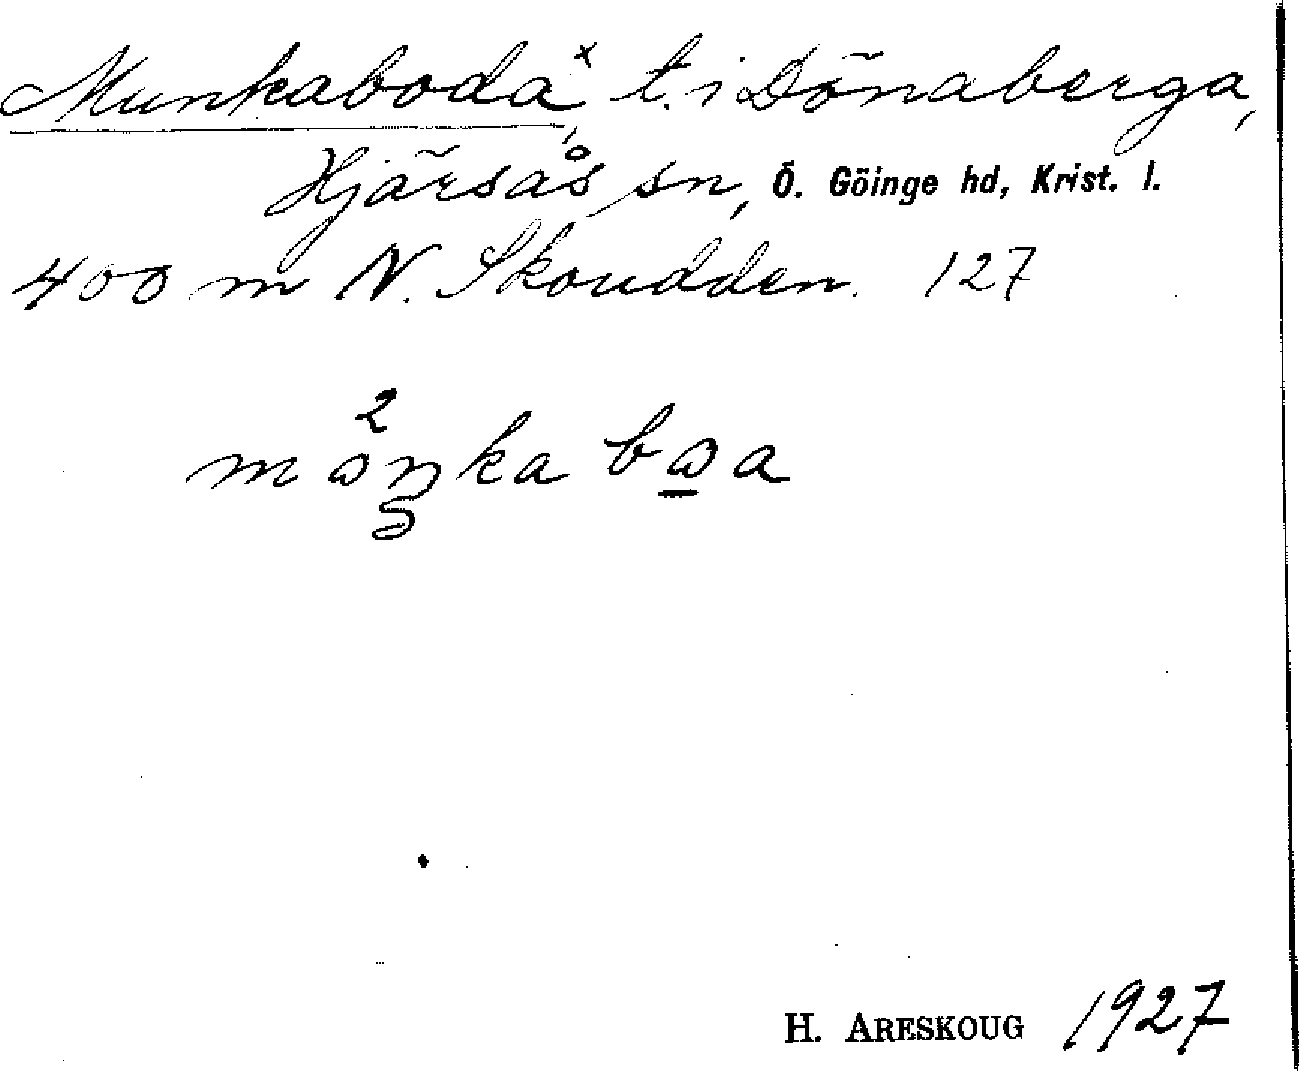 Munkaboda x t. i Dönaberga,
Hjärsås sn, Ö. Göinge hd, Krist. l.
400 m N. Skoudden. 127
2
H. ARESKOUG 1927